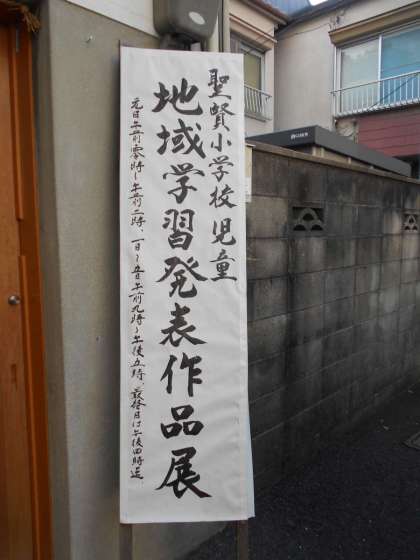 聖賢小学校児童
地域学習発表作品展
元日午前零時〜午前二時、一日〜五日午前九時〜午後五時、最終日は午後四時迄